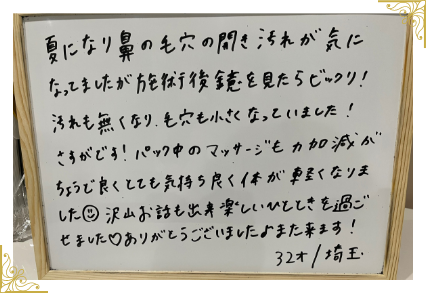 夏になり鼻の毛穴の開き汚れが気に
なってましたが施術後鏡を見たらビックリ!
汚れも無くなり、毛穴も小さくなっていました!
さすがです!パック中のマッサージも力加減が
ちょうど良くとても気持ち良く体が軽くなりま
した☺沢山お話も出来楽しいひとときを過ご
せました♡ありがとうございましたまた来ます!
32才/埼玉